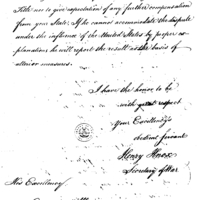 Title nor to give expectation of any further compensation
from your State. If he cannot accommodate the dispute
under the influence of the United States by proper ex-
planations he will report the result as the basis of
ulterior measures.
I have the honor to be
with great respect
Your Excellency's
obedient servant
Henry Knox
Secretary of War
His Excellency